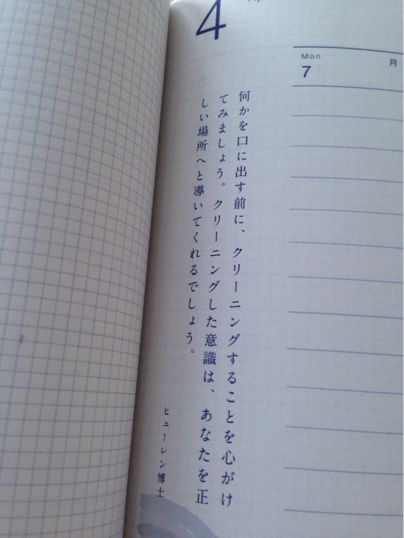 4
Mon
7
月
何かを口に出す前に、クリーニングすることを心がけ
てみましょう。クリーニングした意識は、あなたを正
しい場所へと導いてくれるでしょう。
ヒューレン博士